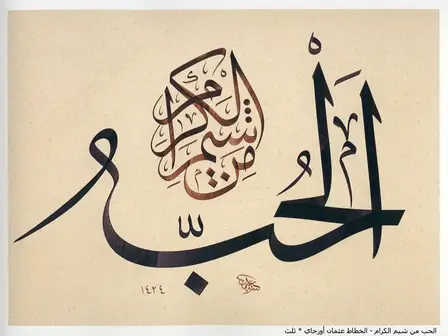 الحب
من شيم الكرام
١٤٢٤
الحب من شيم الكرام - الخطاط عثمان أوزجاي * ثلث